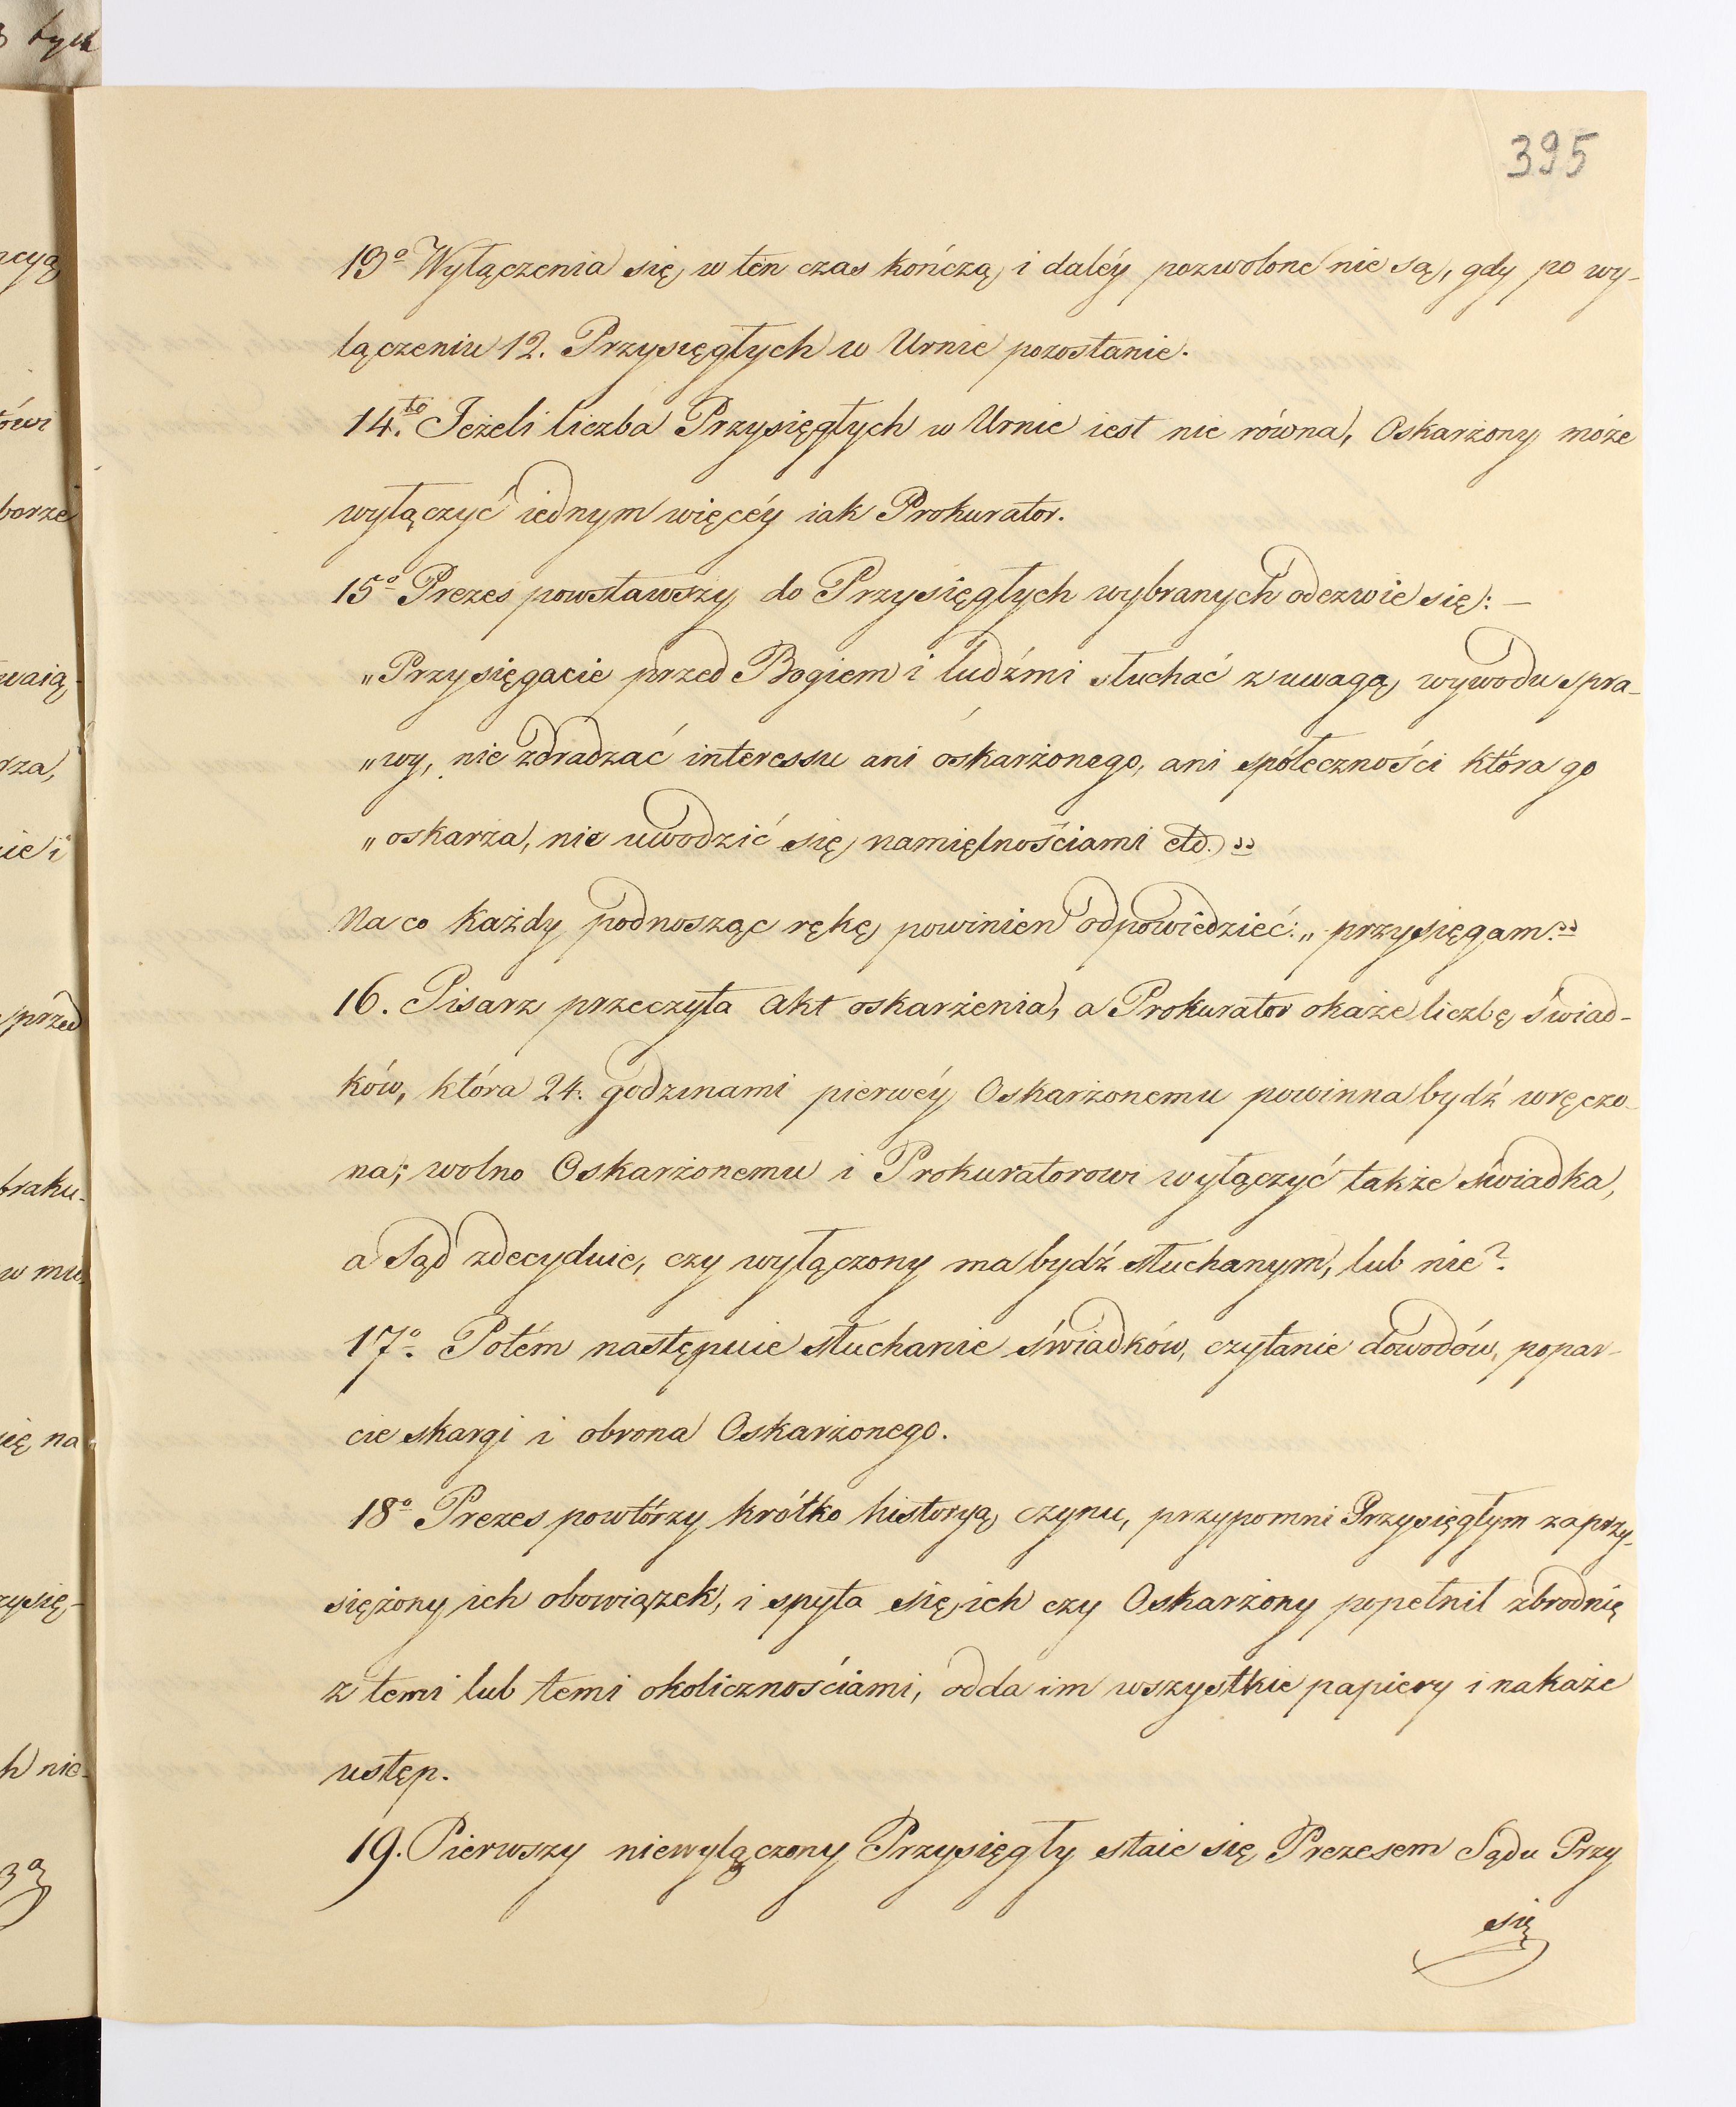 395
13o Wyłączenia się w ten czas kończą i daléy pozwolone nie są, gdy po wy-
łączeniu 12. Przysięgłych w Urnie pozostanie.
14.to Jeżeli liczba Przysięgłych w Urnie iest nie równa, Oskarżony może
wyłączyć iednym więcéy iak Prokurator.
15o Prezes powstawszy do Przysięgłych wybranych odezwie się: —
„Przysięgacie przed Bogiem i ludźmi słuchać z uwagą wywodu spra-
„wy, nie zdradzać interessu ani oskarżonego, ani społeczności która go
„oskarża, nie uwodzić się namiętnościami etd.”
Na co każdy podnosząc rękę powinien odpowiedzieć: „przysięgam.”
16. Pisarz przeczyta akt oskarżenia, a Prokurator okaże liczbę świad-
ków, która 24. godzinami pierwéy Oskarżonemu powinna bydź wręczo-
na; wolno Oskarżonemu i Prokuratorowi wyłączyć także świadka,
a Sąd zdecyduie, czy wyłączony ma bydź słuchanym, lub nie?
17o. Potém następuie słuchanie świadków, czytanie dowodów, popar-
cie skargi i obrona Oskarżonego.
18o Prezes powtórzy krótko historyą czynu, przypomni Przysięgłym zaprzy-
siężony ich obowiązek, i spyta się ich czy Oskarżony popełnił zbrodnię
z temi lub temi okolicznościami, odda im wszystkie papiery i nakaże
ustęp.
19. Pierwszy niewyłączony Przysięgły staie się Prezesem Sądu Przy
się
tych
ówi
przed
braku-
się na
h nie-